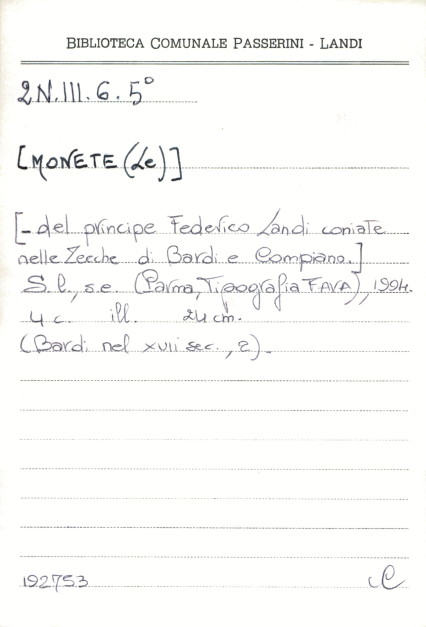 BIBLIOTECA COMUNALE PASSERINI - LANDI
2N.III.6.5°
[MONETE (Le)]
[- del principe Federico Landi coniate
nelle Zecche di Bardi e Compiano.]
S.l., s.e. (Parma, Tipografia FAVA), 1994.
4 c. ill. 24 cm.
(Bardi nel XVII sec., 2).
192753